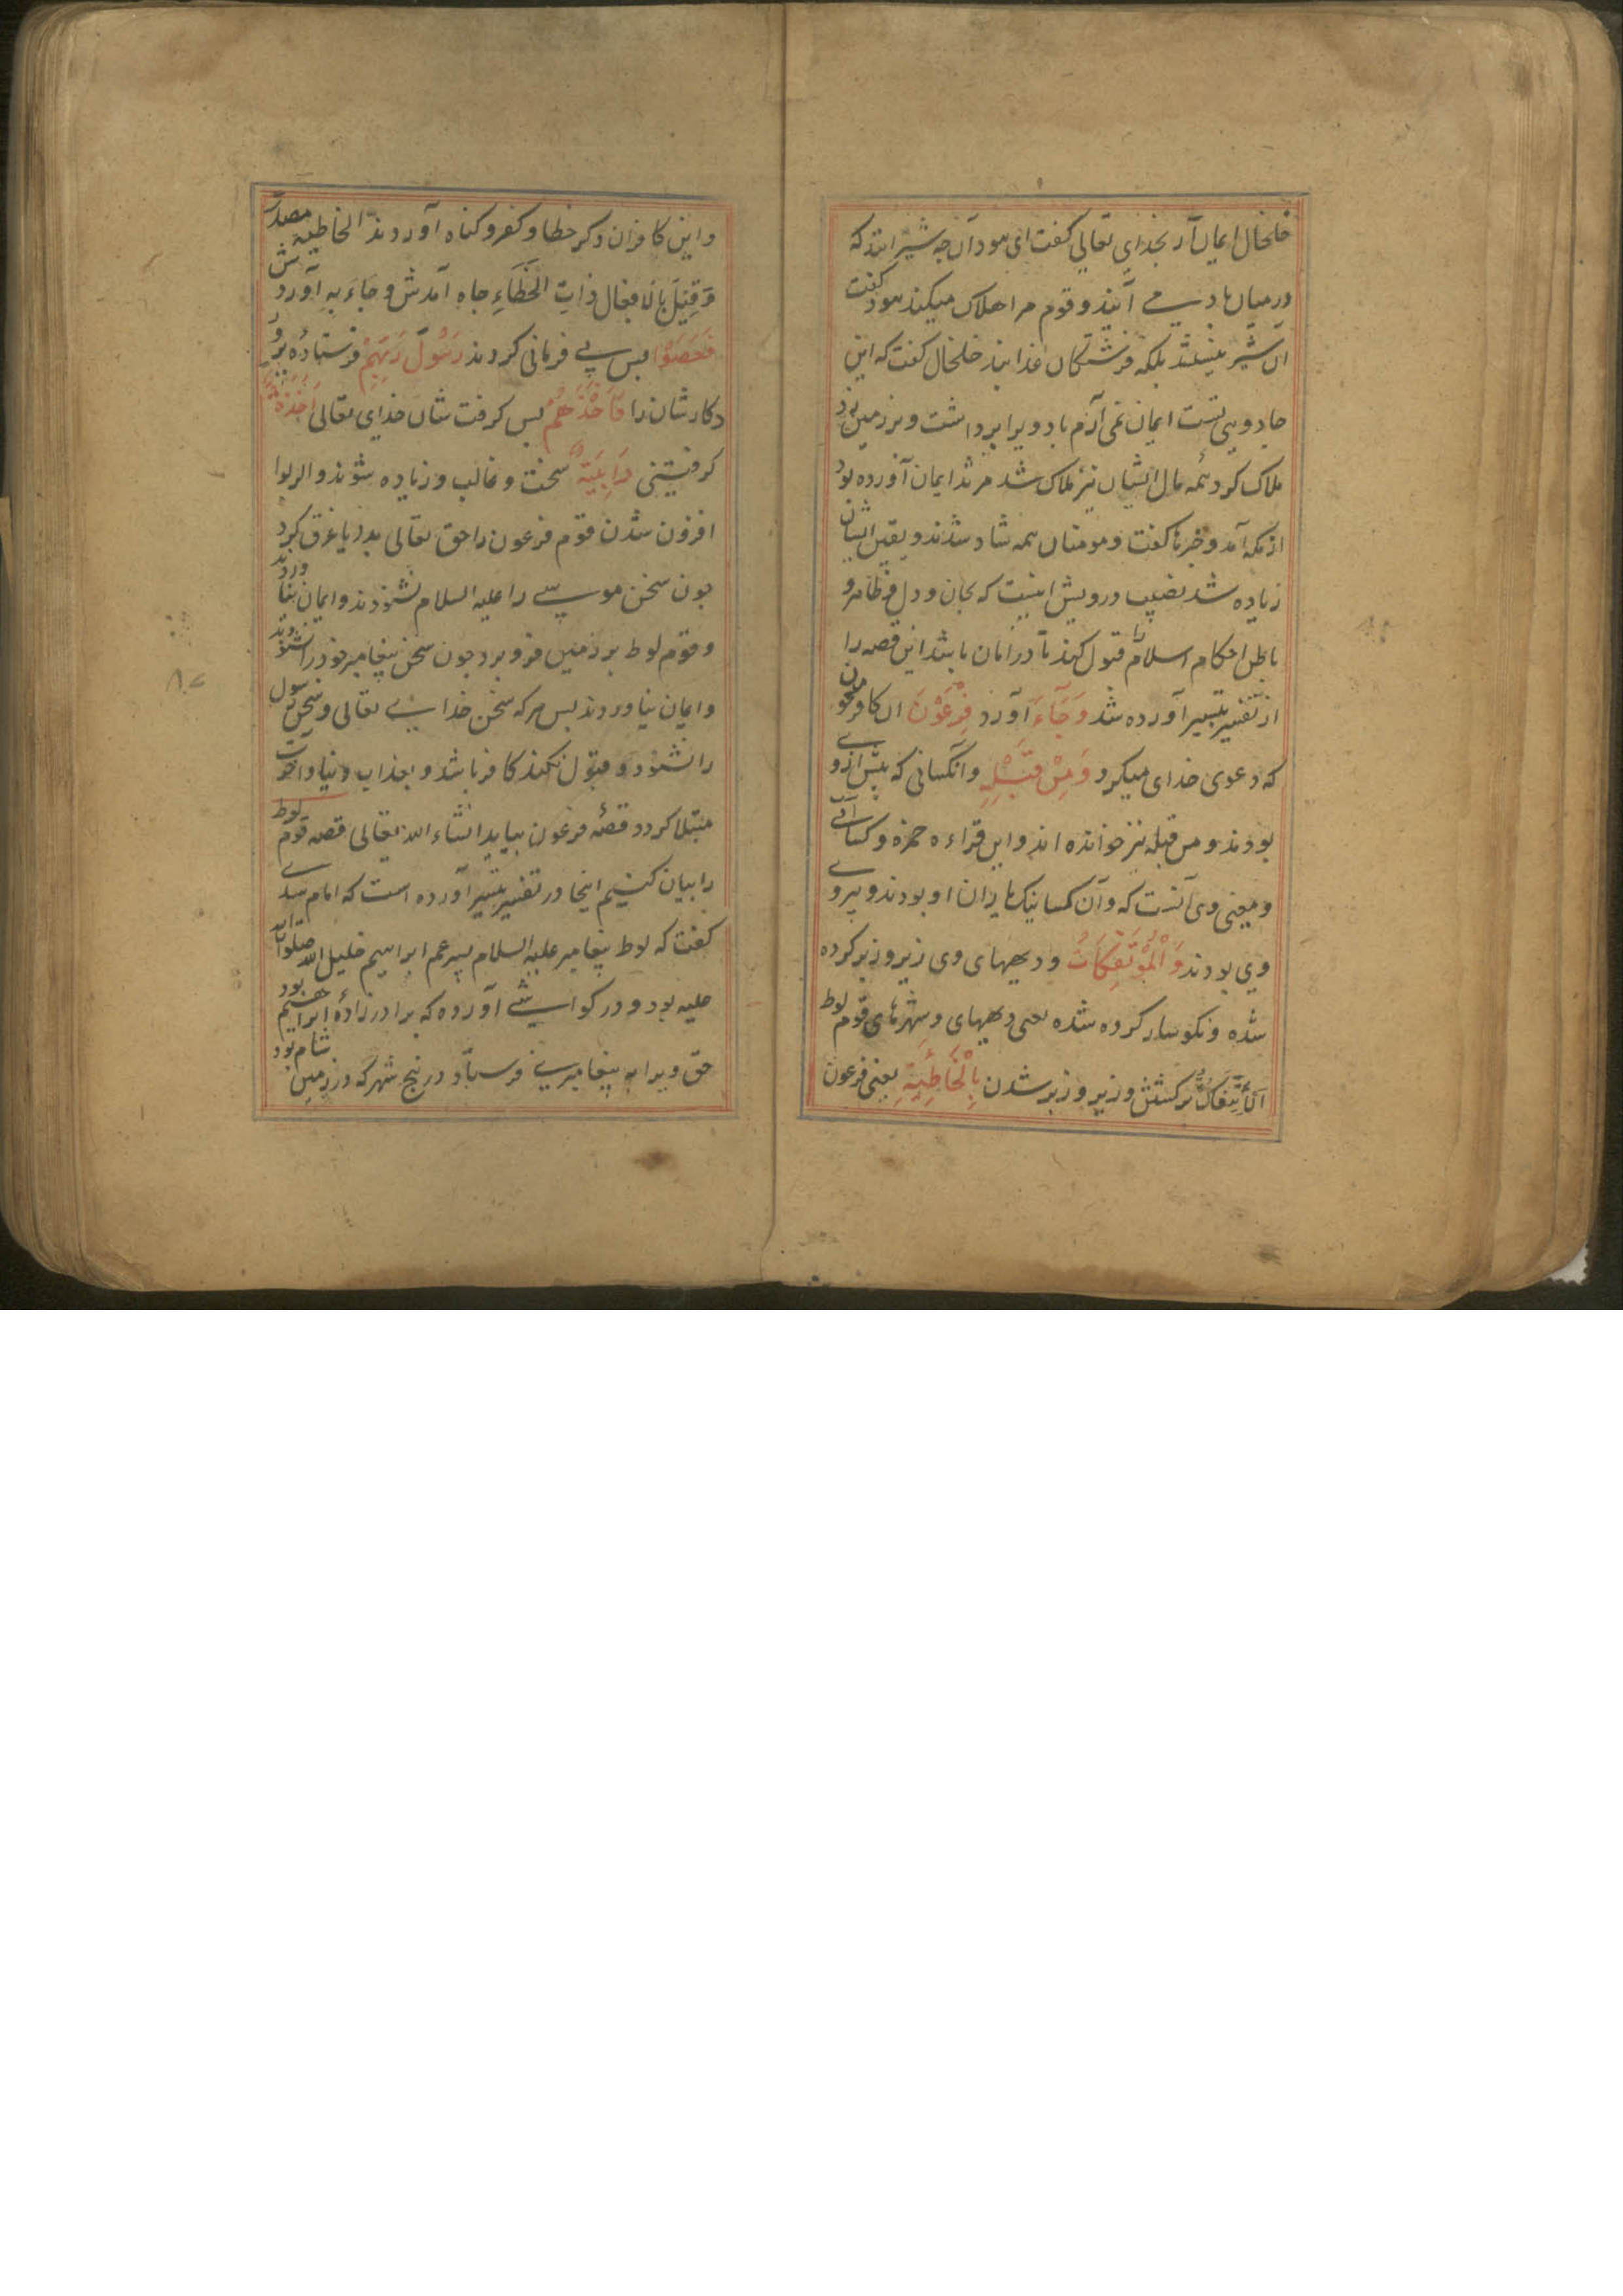 خلخال ایمان آر بخدای تعالی کفت ای هود آن چه شیرانند که
درمیان باد می آیند و قوم مرا هلاک میکنند هود کفت
آن شیر نیستند بلکه فرشتکان خدایند خلخال کفت که این
جادویی تست ایمان نمی آرم باد ویرا برداشت و بر زمین زد
هلاک کرد همه مال ایشان نیز هلاک شد مرثد ایمان آورده بود
از مکه آمد و خبرها کفت و مومنان همه شاد شدند و یقین ایشان
زیاده شد نصیب درویش اینست که بجان و دل و ظاهر و
باطن احکام اسلام را قبول کند تا در امان باشد این قصه را
از تفسیر تیسیر آورده شد وَجَآءَ آورد فِرْعَوْنَ آن کافر ملعون
که دعوی خدای میکرد وَمِنْ قَبْلِهِ و آنکسانی که پیش از وے
بودند و من قبله نیز خوانده اند و این قراءه حمزه و کسائی
و معنی وی آنست که و آن کسانیکه یاران او بودند و پیروے
وی بودند وَالْمُؤْتَفِکَاتُ و دیههای وی زیر و زبر کرده
شده و نکوسار کرده شده یعنی دیههای و شهرهای قوم لوط
اَلْاِئْتِفَاکُ برکشتن و زیر و زبر شدن بِالْخَاطِئَةِ یعنی فرعون
و این کافران دکر خطا و کفر و کناه آوردند الخاطیة مصدر
وَقِیْلَ بالافعال ذَاتِ الْخَطَاءِ جاه آمدش و جَاءَ بِهِ آوردش
فَعَصَوْا پس بی فرمانی کردند رَسُوْلَ رَبِّهِمْ فرستاده پرور
دکارشان را فَاَخَذَهُمْ پس کرفت شان خدای تعالی اَخْذَةً
کرفتنی رَابِیَةً سخت و غالب و زیاده شونده والربوا
افزون شدن قوم فرعون را حق تعالی بدریا غرق کرد
چون سخن موسی را علیه السلام نشنودند و ایمان نیاوردند
و قوم لوط بر زمین فرو برد چون سخن پیغامبر خود را نشنودند
و ایمان نیاوردند پس هرکه سخن خدای تعالی و سخن رسول
را نشنود و قبول نکند کافر باشد و بعذاب دنیا و آخرت
مبتلا کردد قصهٔ فرعون بیاید انشاء الله تعالی قصه قوم لوط
را بیان کنیم اینجا در تفسیر تیسیر آورده است که امام سدی
کفت که لوط پیغامبر علیه السلام پسر عم ابراهیم خلیل الله صلوات الله
علیه بود و در کواشی آورده که برادرزادهٔ ابراهیم بود
حق ویرا به پیغامبری فرستاد در پنج شهر که در زمین شام بود